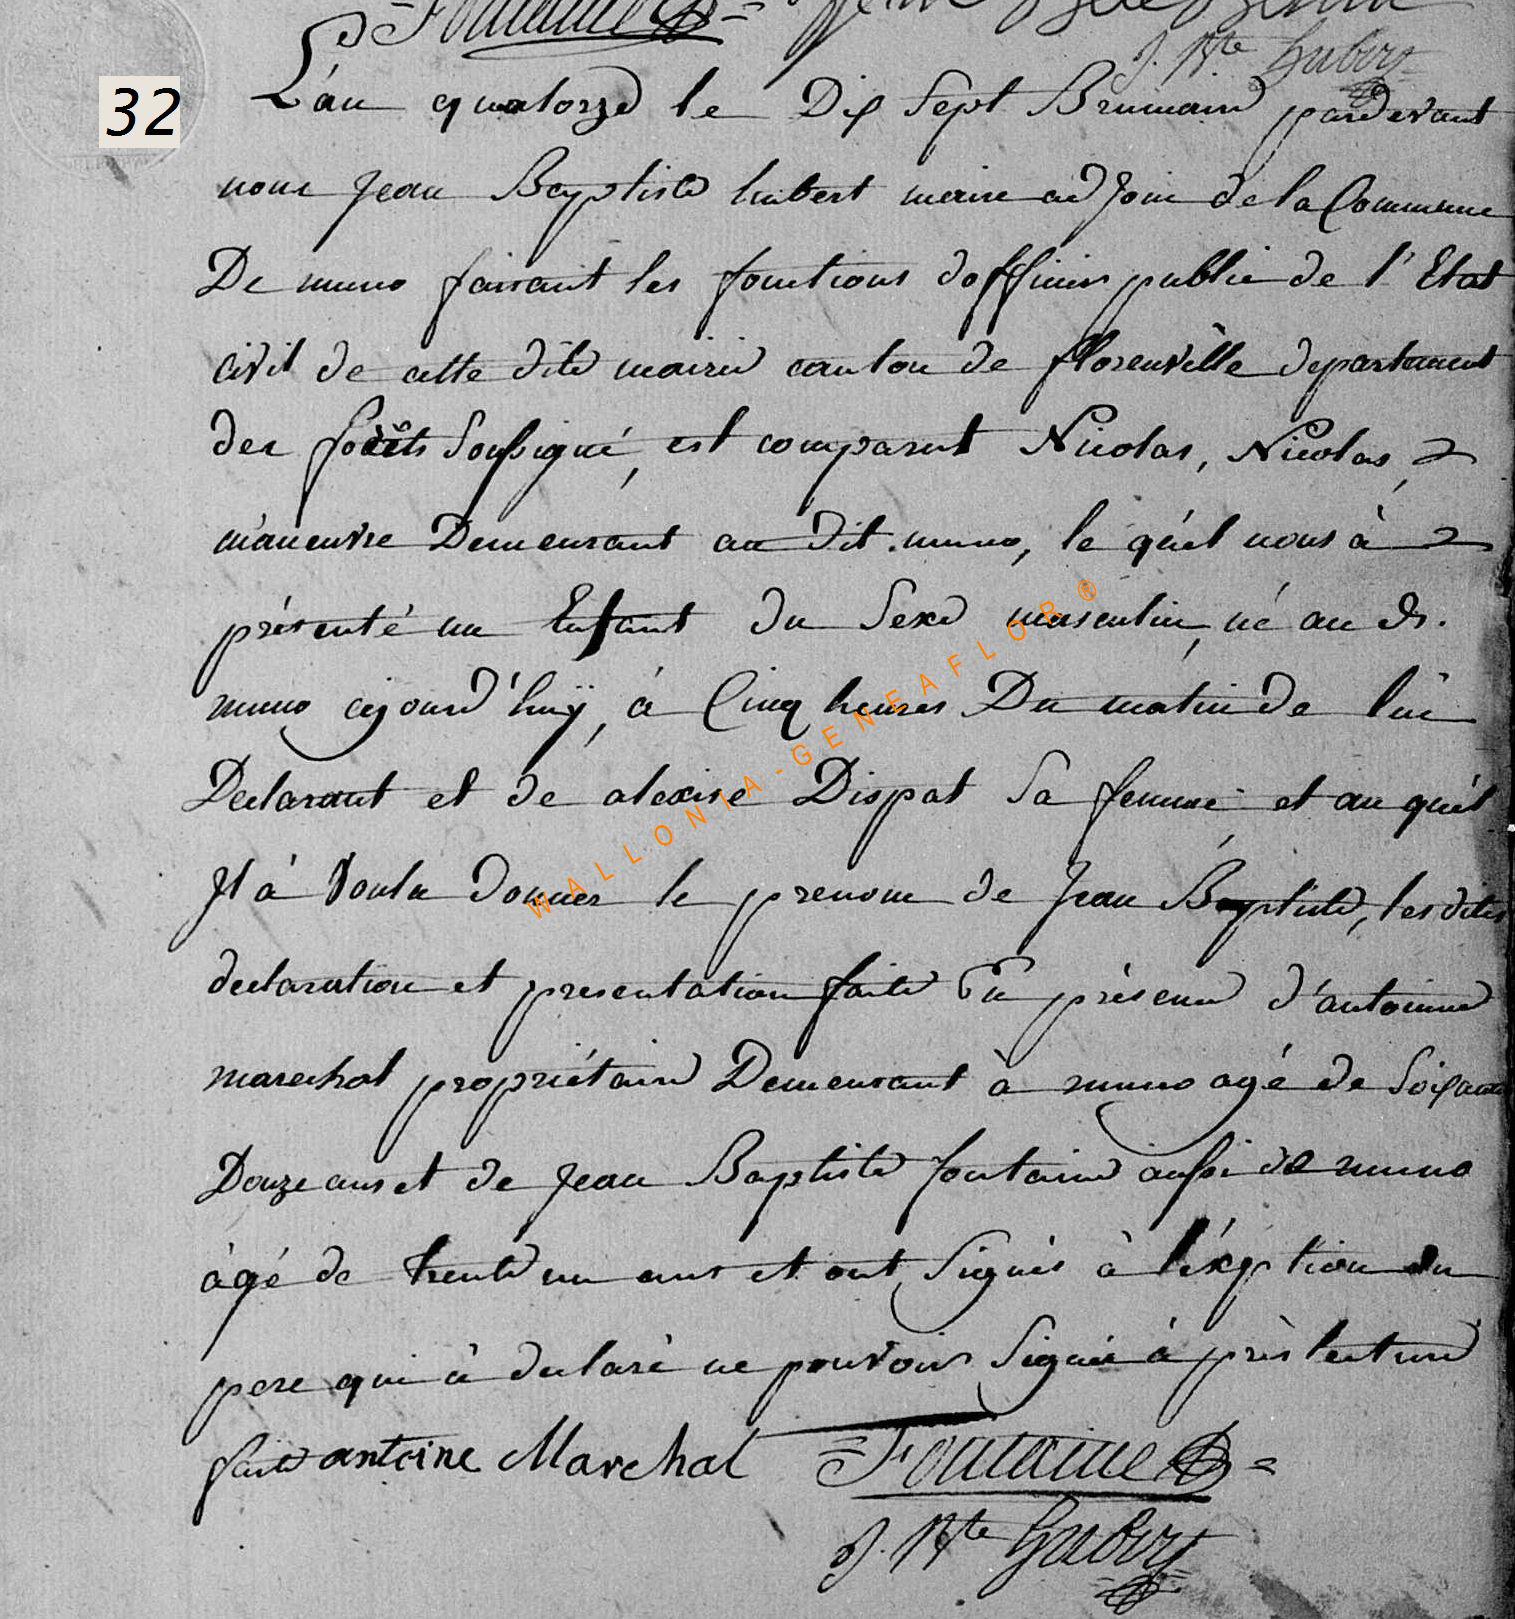 Fontaine
J. Bte Hubert
32
L'an quatorze le Dix Sept Brumaire pardevant
nous Jean Baptiste hubert maire adjoin de la Commune
De muno faisant les fonctions dofficier public de l'Etat
civil de cette dite mairie canton de florenville departement
des forêts Soussigné, est comparut Nicolas, Nicolas,
manœuvre Demeurant au dit muno, le quél nous à
présenté un Enfant du Sexe masculin, né au dt.
muno cejourd'huÿ, à Cinq heures Du matin de lui
Declarant et de alexise Dispat Sa femme et au quél
Il à Voulu donner le prenom de Jean Baptiste, les dites
declaration et presentation faite En présence d'antoinne
marechal propriétaire Demeurant à muno agé de Soixante
Douze ans et de Jean Baptiste fontaine aussi de muno
àgé de trente un ans et ont Signés à l'éxeption du
pere qui à declaré ne pouvoir Signer à près lecture
faite antoine Marchal Fontaine
J. Bte Hubert
WALLONIA-GENEAFLOR®